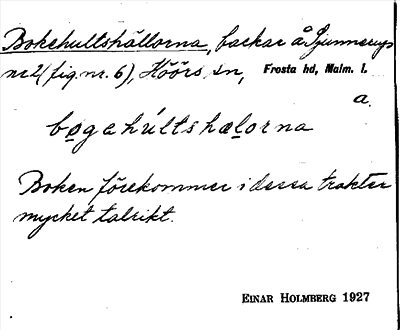 Bokehultshällorna, backar å Sjunnerup
nr 2 (fig. nr. 6), Höörs sn, Frosta hd, Malm. l.
a.
bogehúltshælorna
Boken förekommer i dessa trakter
mycket talrikt.
EINAR HOLMBERG 1927